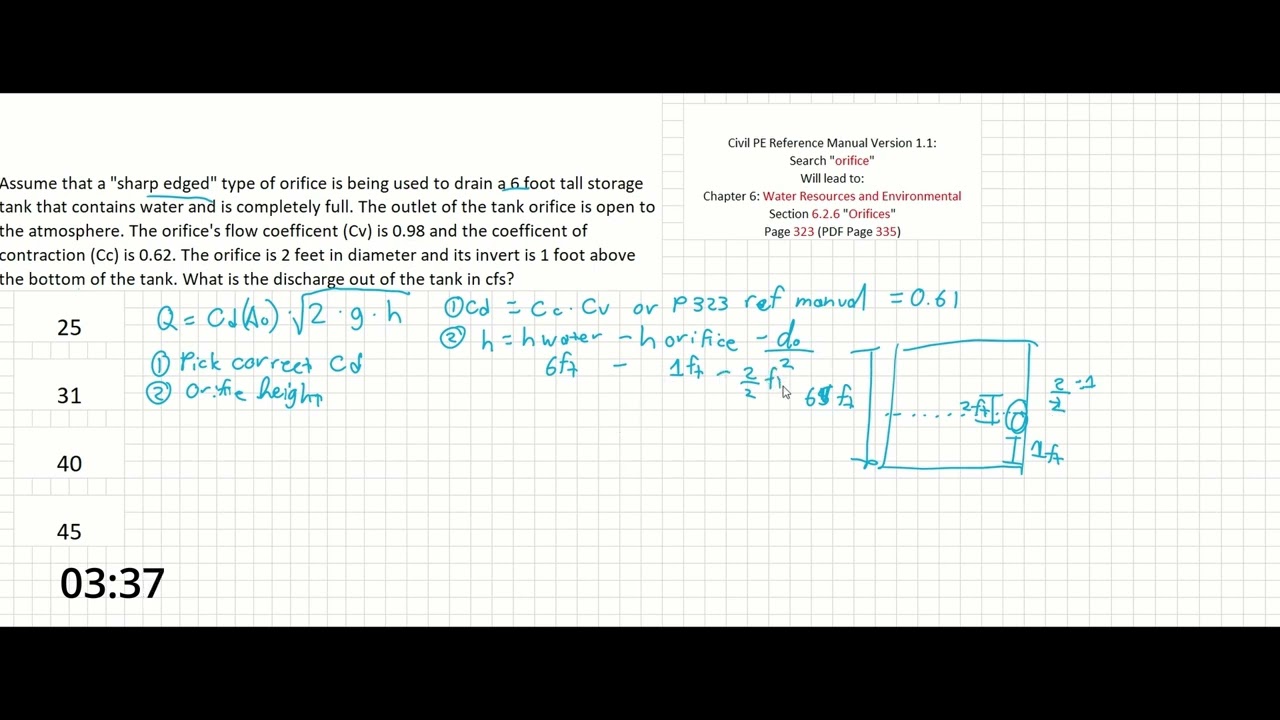 Civil PE Reference Manual Version 1.1:
Search "orifice"
Will lead to:
Chapter 6: Water Resources and Environmental
Section 6.2.6 "Orifices"
Page 323 (PDF Page 335)
Assume that a "sharp edged" type of orifice is being used to drain a 6 foot tall storage
tank that contains water and is completely full. The outlet of the tank orifice is open to
the atmosphere. The orifice's flow coefficent (Cv) is 0.98 and the coefficent of
contraction (Cc) is 0.62. The orifice is 2 feet in diameter and its invert is 1 foot above
the bottom of the tank. What is the discharge out of the tank in cfs?
25
31
40
45
03:37
Q = Cd(Ao) · √2 · g · h
① Pick correct Cd
② Orifie height
① Cd = Cc · Cv or P323 ref manual = 0.61
② h = h water - h orifice - do/2
6ft - 1ft - 2/2 ft
6 ft
2ft
1ft
2/2 = 1